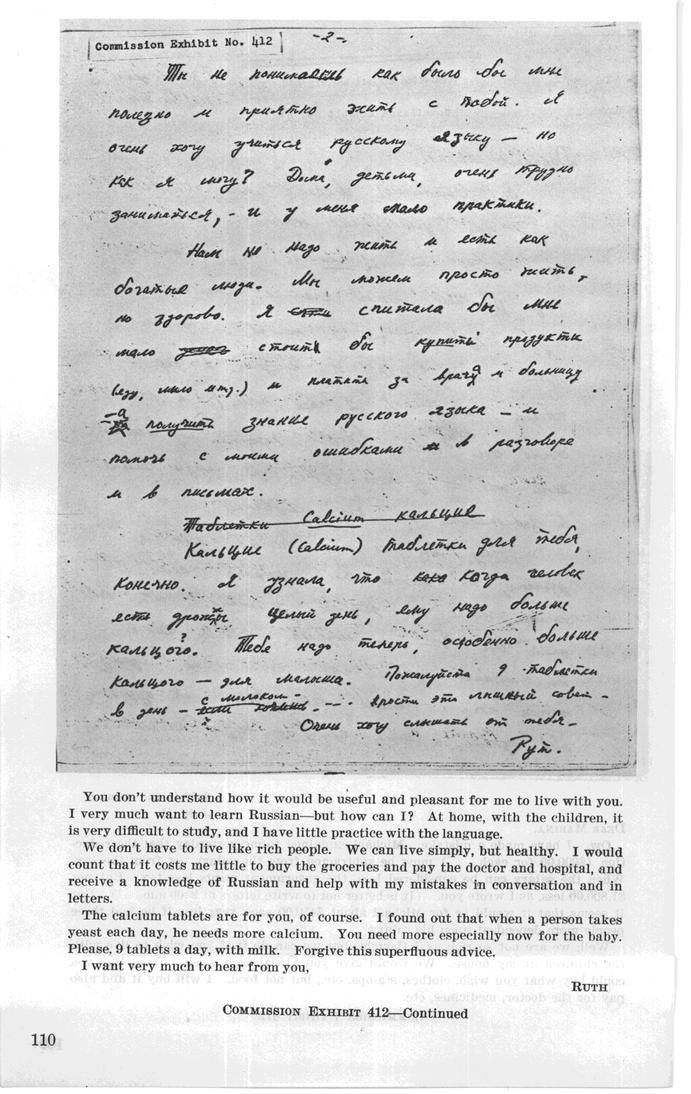 Commission Exhibit No. 412
-2-.
Ты не понимаешь как было бы мне
полезно и приятно жить с тобой. Я
очень хочу учиться русскому языку — но
как я могу? Дома, детьми, очень трудно
заниматься, - и у меня мало практики.
Нам не надо жить и есть как
богатые люди. Мы можем просто жить,
но здорово. Я считала бы мне
мало стоить бы купить продукти
(еду, мыло итд.) и платить за врача и больницу
-а получить знание русского языка — и
помочь с моими ошибками в разговоре
и в письмах.
Таблетки Calcium кальцие
Кальцие (Calcium) таблетки для тебя,
конечно. Я узнала, что когда человек
есть дрожжы целый день, ему надо больше
кальцого?. Тебе надо теперь, особенно больше
кальцого — для малыша. Пожалуйста 9 таблетки
в день - с молоком - ... прости эти лишный совет -
Очень хочу слышать от тебя -
Рут.
You don't understand how it would be useful and pleasant for me to live with you.
I very much want to learn Russian—but how can I? At home, with the children, it
is very difficult to study, and I have little practice with the language.
We don't have to live like rich people. We can live simply, but healthy. I would
count that it costs me little to buy the groceries and pay the doctor and hospital, and
receive a knowledge of Russian and help with my mistakes in conversation and in
letters.
The calcium tablets are for you, of course. I found out that when a person takes
yeast each day, he needs more calcium. You need more especially now for the baby.
Please, 9 tablets a day, with milk. Forgive this superfluous advice.
I want very much to hear from you,
RUTH
COMMISSION EXHIBIT 412—Continued
110